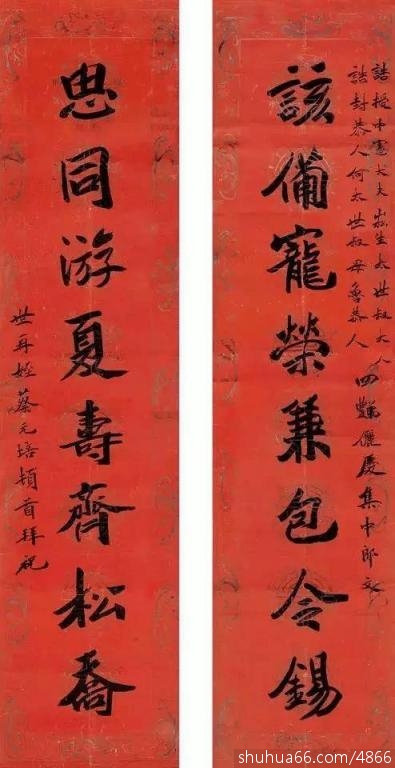 誥授中憲大夫崧生太世叔大人
誥封恭人何太世叔母魯恭人
四 儷慶集中郎文
該備寵榮兼包令錫
思同游夏壽齊松喬
世再姪蔡元培頓首拜祝
shuhua66.com/4866